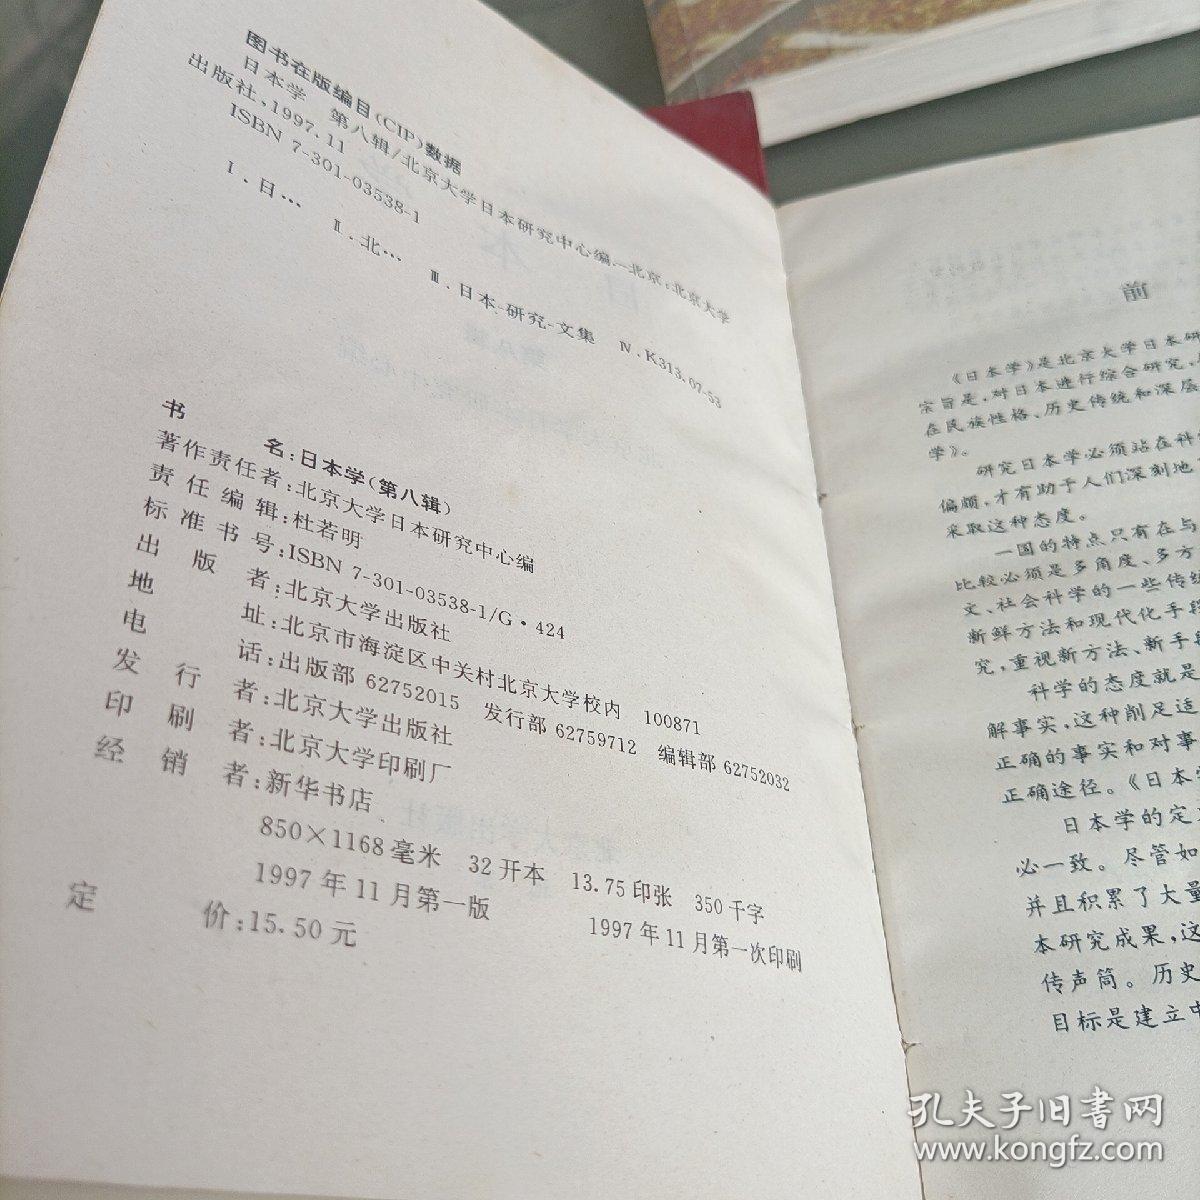 图书在版编目(CIP)数据
日本学 第八辑/北京大学日本研究中心编.—北京:北京大学
出版社,1997.11
ISBN 7-301-03538-1
Ⅰ.日… Ⅱ.北… Ⅲ.日本-研究-文集 Ⅳ.K313.07-53
书 名:日本学(第八辑)
著作责任者:北京大学日本研究中心编
责任编辑:杜若明
标准书号:ISBN 7-301-03538-1/G·424
出版者:北京大学出版社
地 址:北京市海淀区中关村北京大学校内 100871
电 话:出版部 62752015 发行部 62759712 编辑部 62752032
发行者:北京大学出版社
印刷者:北京大学印刷厂
经销者:新华书店
850×1168毫米 32开本 13.75印张 350千字
1997年11月第一版 1997年11月第一次印刷
定 价:15.50元
前
《日本学》是北京大学日本研
宗旨是,对日本进行综合研究,
在民族性格、历史传统和深层
学》。
研究日本学必须站在科学
偏颇,才有助于人们深刻地
采取这种态度。
一国的特点只有在与
比较必须是多角度、多方
文、社会科学的一些传统
新鲜方法和现代化手段
究,重视新方法、新手段
科学的态度就是
解事实,这种削足适
正确的事实和对事
正确途径。《日本学
日本学的定
必一致。尽管如
并且积累了大量
本研究成果,这
传声筒。历史
目标是建立中
孔夫子旧书网
www.kongfz.com